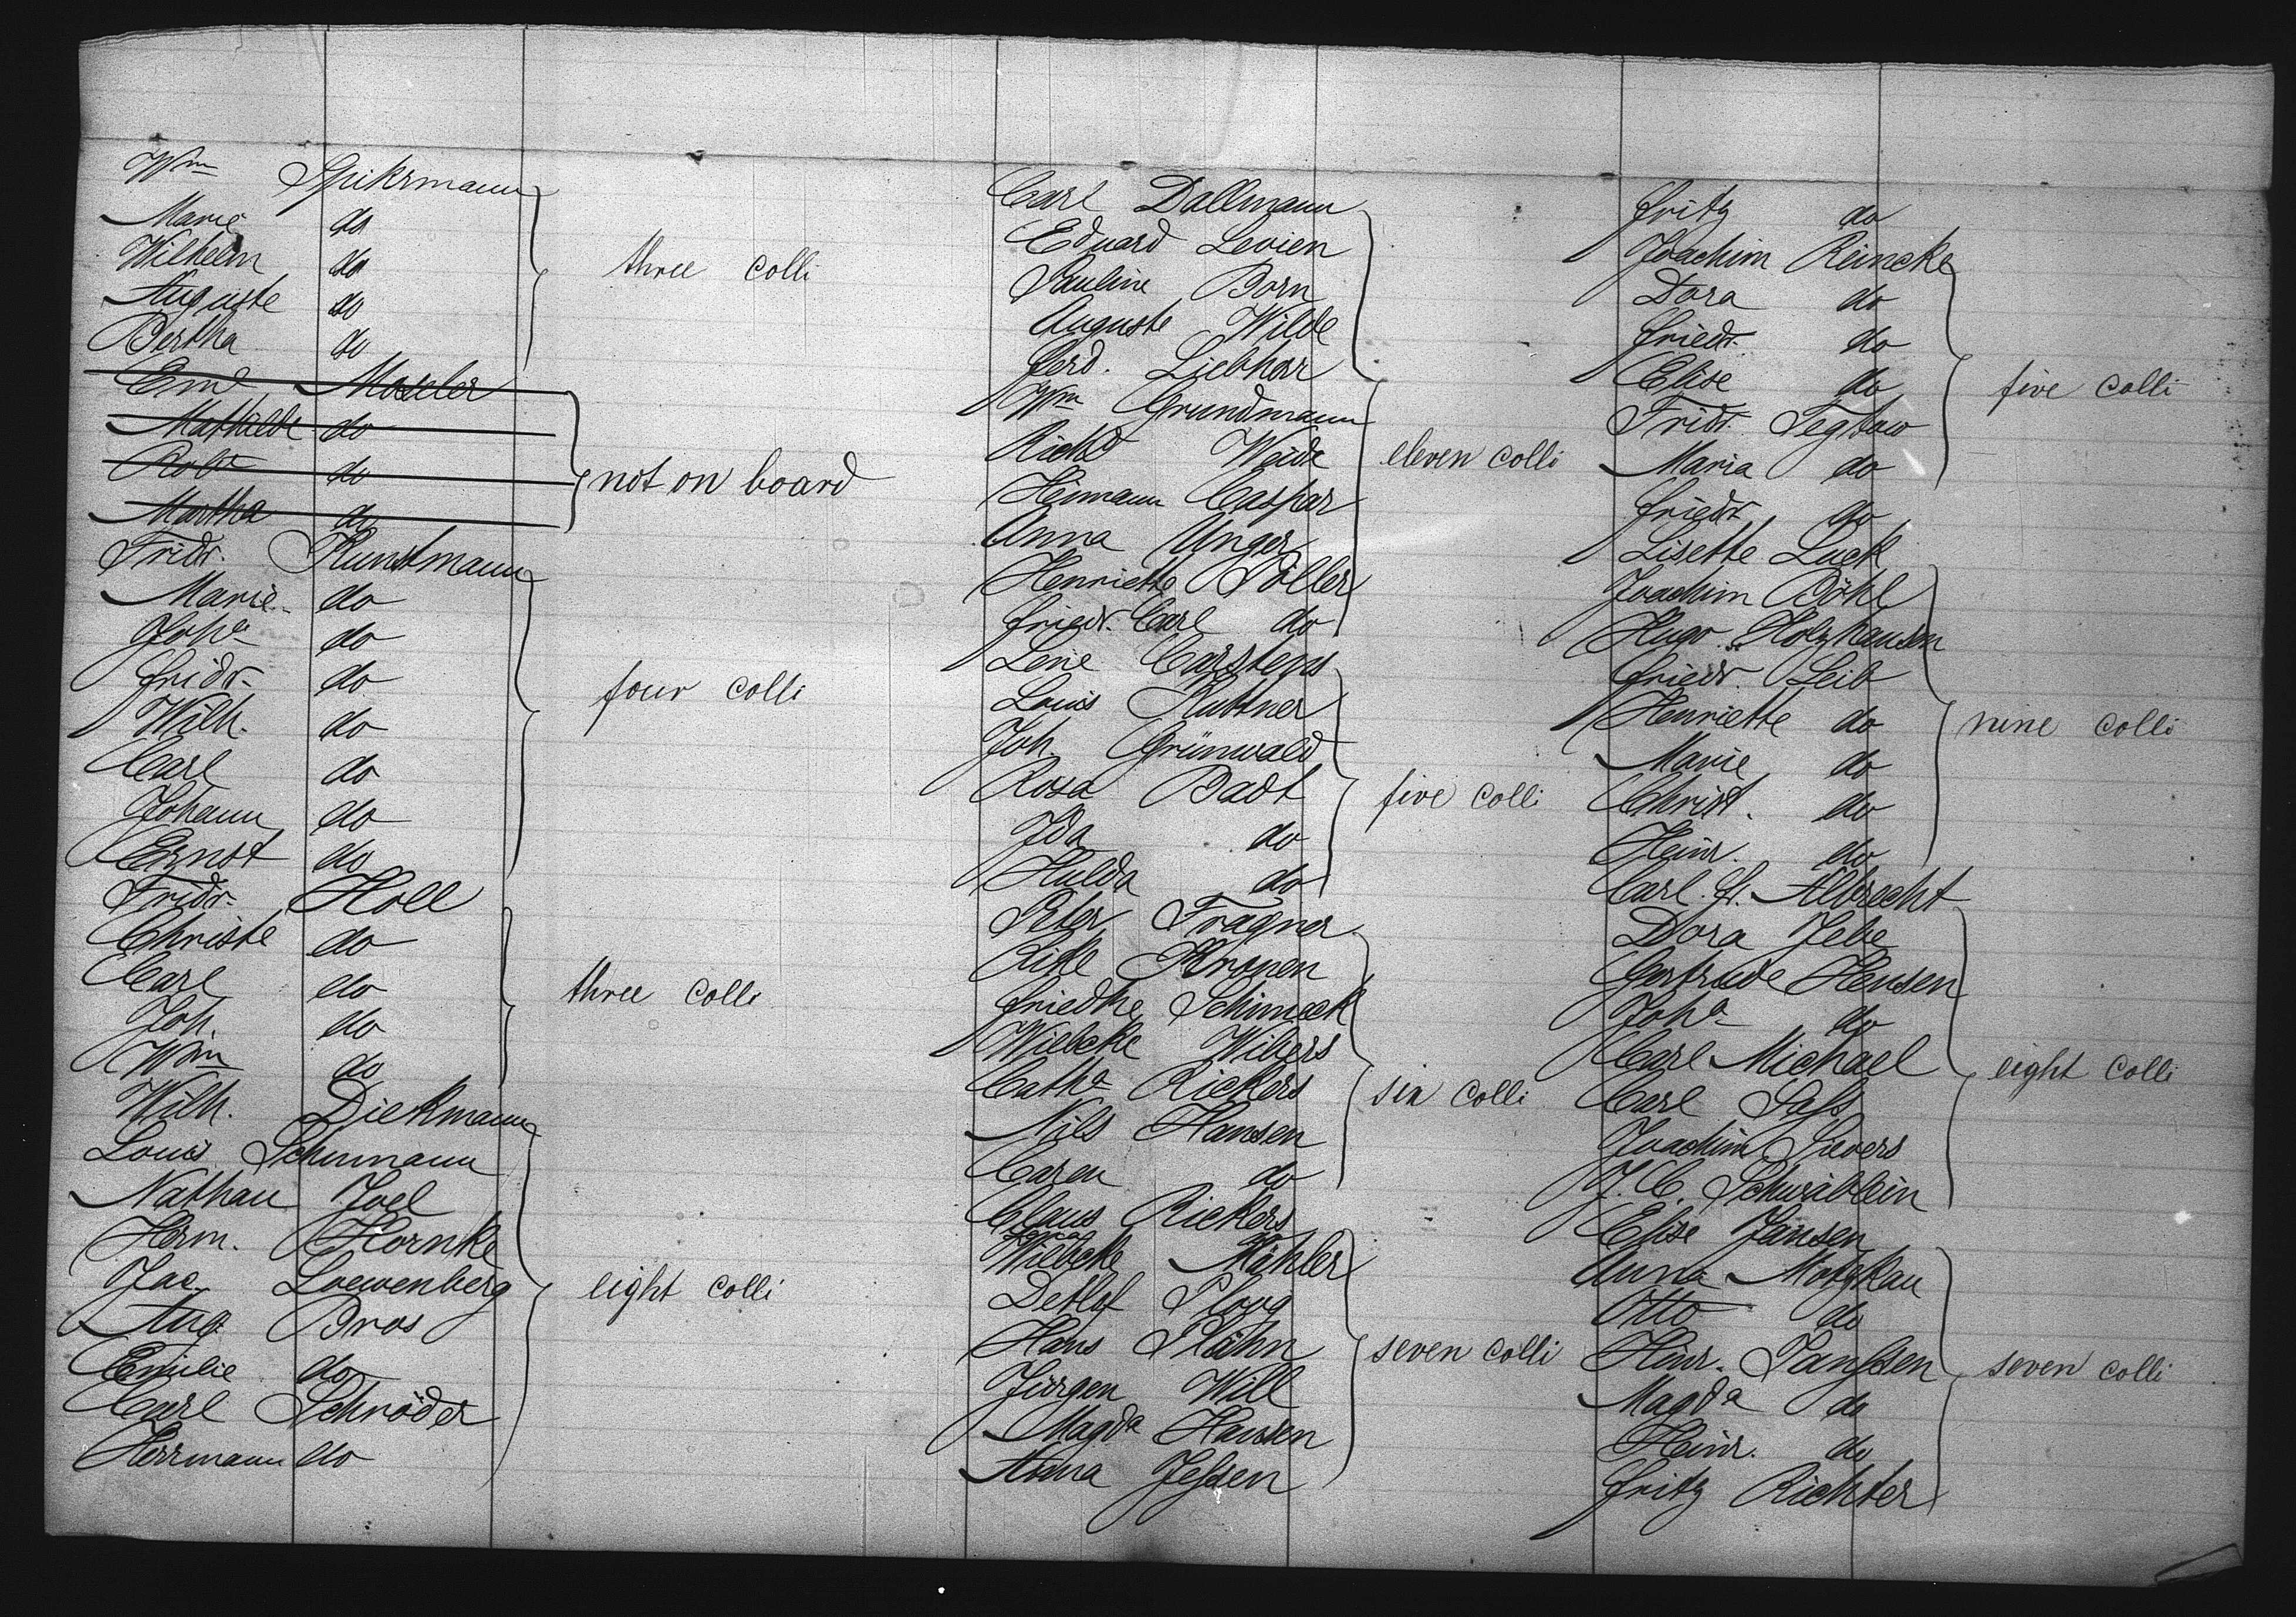 Wm Spikrmann
Marie do
Wilhelm do
Auguste do
Bertha do
three colli
Eml Moseler
Mathilde do
Robt do
Martha do
not on board
Fridr. Kunstmann
Marie do
Joha do
Fridr. do
Wilh. do
Carl do
Johann do
Ernst do
four colli
Fridr. Holl
Christe do
Carl do
Joh. do
Wm do
three colli
Wilh. Diekmann
Louis Schumann
Nathan Joel
Herm. Hornke
Jac. Loewenberg
Aug. Bros
Emilie do
Carl Schröder
Herrmann do
eight colli
Carl Dallmann
Eduard Levien
Pauline Born
Auguste Wilde
Ferd. Liebharr
Wm Grundmann
Richd Weide
Heimann Caspar
Anna Unger
Henriette Döller
Friedr. Carl do
eleven colli
Lene Carstens
Louis Ruttner
Joh. Grünwald
Rosa Badt
Ida do
Hulda do
five colli
Peter Fragner
Rike Kronen
Friedke Schimeck
Wiebcke Wibers
Catha Rickers
Nils Hansen
Caren do
six colli
Claus Rickers
Wiebcke Mähler
Detlef Ploog
Hans Plähn
Jürgen Will
Magda Hansen
Anna Jessen
seven colli
Fritz do
Joachim Reincke
Dora do
Friedr. do
Elise do
Fridr. Tegtow
Maria do
Friedr. do
five colli
Lisette Luck
Joachim Böhl
Hugo Holzhausen
Friedr. Leib
Henriette do
Marie do
Christ. do
Heinr. do
nine colli
Carl Fr. Albrecht
Dora Jebe
Gertrude Hensen
Joha do
Carl Michael
Carl Sass
Joachim Sievers
J. C. Schwäblein
eight colli
Elise Jansen
Anna Motzkau
Otto do
Hinr. Janssen
Magda do
Heinr. do
Fritz Richter
seven colli